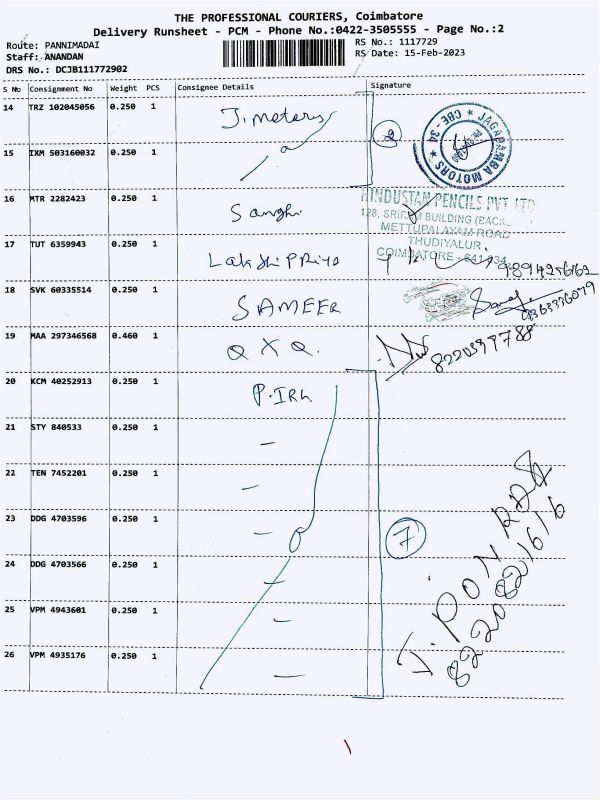 THE PROFESSIONAL COURIERS, Coimbatore
Delivery Runsheet - PCM - Phone No.:0422-3505555 - Page No.:2
Route: PANNIMADAI
RS No.: 1117729
Staff: ANANDAN
RS Date: 15-Feb-2023
DRS No.: DCJB111772902
S No Consignment No Weight PCS Consignee Details Signature
14 TRZ 102045056 0.250 1 J.meters
2
JAGADAMBA MOTORS ★ CBE - 34 ★
15 IXM 503160032 0.250 1
16 MTR 2282423 0.250 1 Sanghi
HINDUSTAN PENCILS PVT LTD
128, SRIRAM BUILDING (BACK
METTUPALAYAM ROAD
THUDIYALUR,
COIMBATORE - 641 034
17 TUT 6359943 0.250 1 Lakshi priya
9894256162
18 SVK 60335514 0.250 1 SAMEER
9363336079
19 MAA 297346568 0.460 1 QXQ.
8220397788
20 KCM 40252913 0.250 1 P.IRK
21 STY 840533 0.250 1 -
22 TEN 7452201 0.250 1 -
23 DDG 4703596 0.250 1 -
7
24 DDG 4703566 0.250 1 -
25 VPM 4943601 0.250 1 -
26 VPM 4935176 0.250 1 -
J. PON RAJ
8220821616